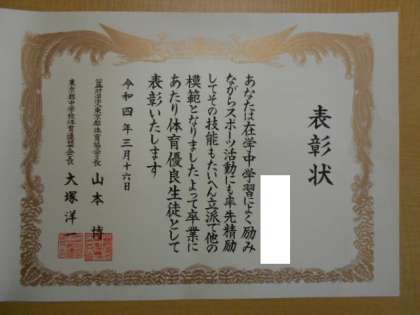 表彰状
あなたは在学中学習によく励み
ながらスポーツ活動にも率先精励
してその技能もたいへん立派で他の
模範となりましたよって卒業に
あたり体育優良生徒として
表彰いたします
令和四年三月十六日
公益財団法人東京都体育協会会長 山本 博
東京都中学校体育連盟会長 大塚洋一